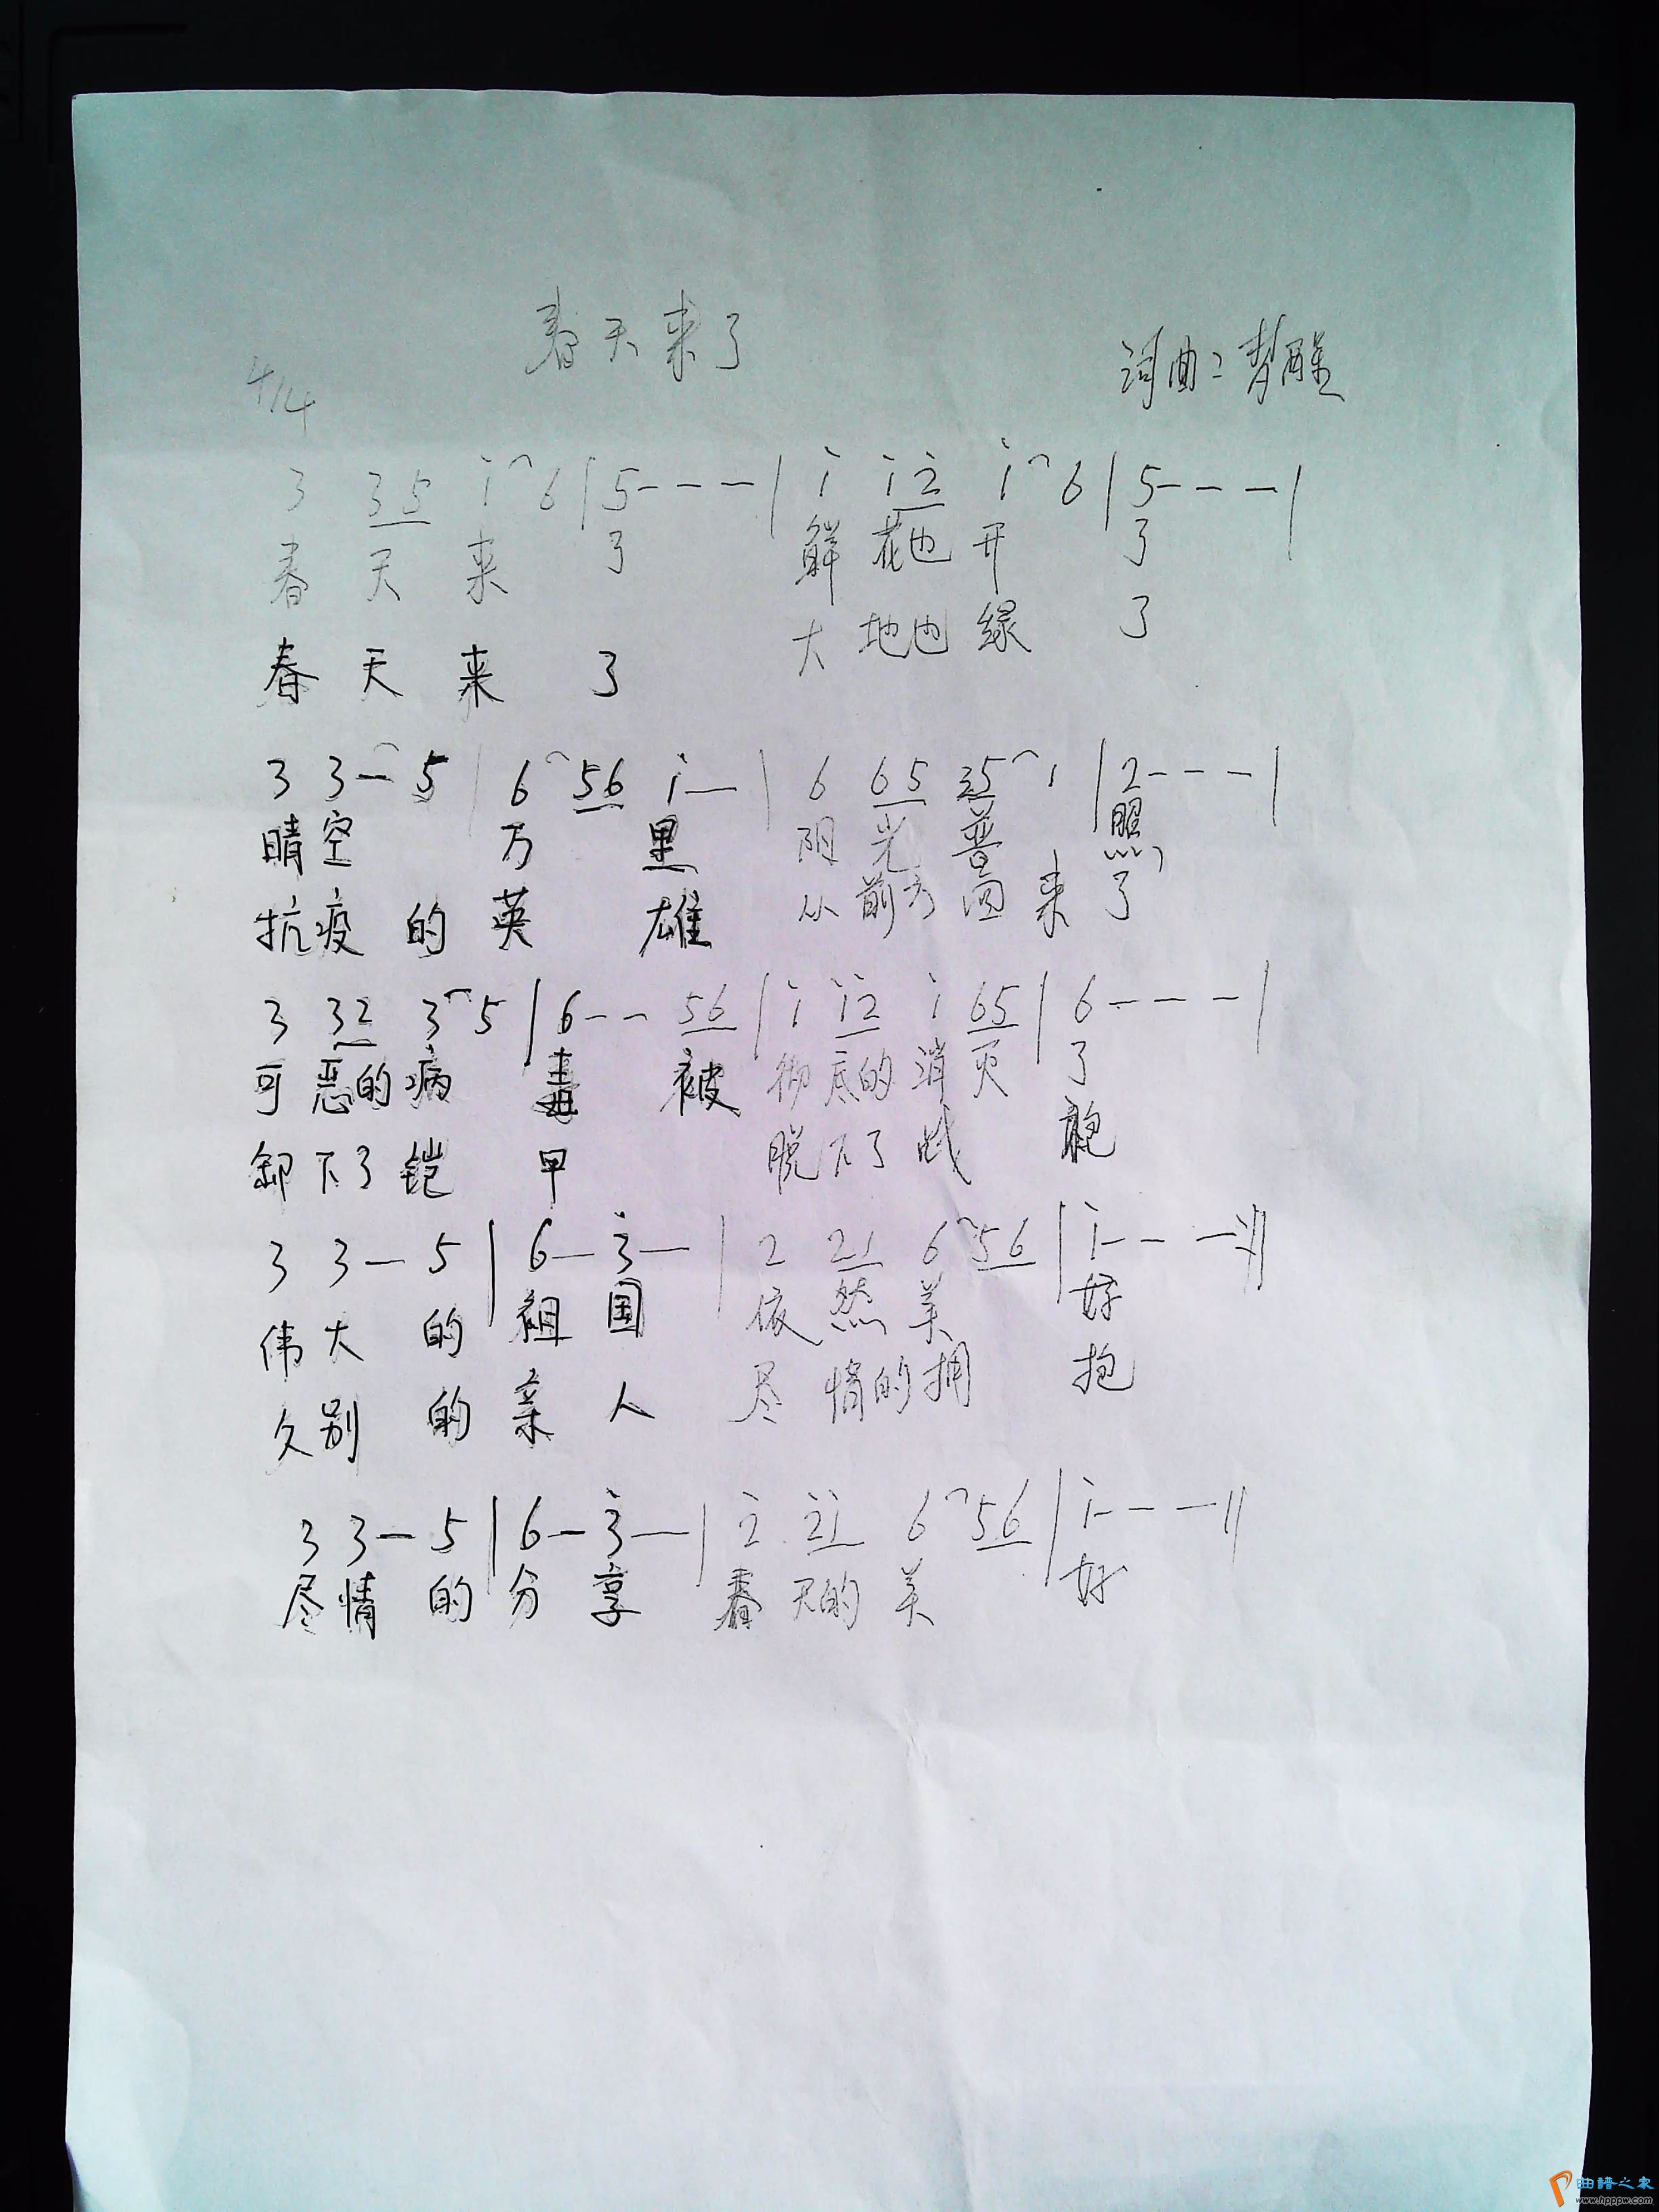 春天来了
4/4
词曲：梦醒
3 35 i 6 | 5 - - - | i i2 i 6 | 5 - - - |
春 天 来 了 鲜 花也 开 了
春 天 来 了 大 地也 绿 了
3 3 - 5 | 6 56 i - | 6 65 35 1 | 2 - - - |
晴空 万 里 阳 光 普 照
抗疫 的 英 雄 从 前方 回 来 了
3 32 3 5 | 6 - - 56 | i i2 i 65 | 6 - - - |
可 恶的 病 毒 被 彻 底的 消 灭 了
卸 下了 铠 甲 脱 下了 战 袍
3 3 - 5 | 6 - 3 - | 2 21 6 56 | i - - - :||
伟大 的 祖 国 依 然 美 好
久别 的 亲 人 尽 情的 拥 抱
3 3 - 5 | 6 - 3 - | 2 21 6 56 | i - - - ||
尽情 的 分 享 春 天的 美 好
曲谱之家
www.hppw.com